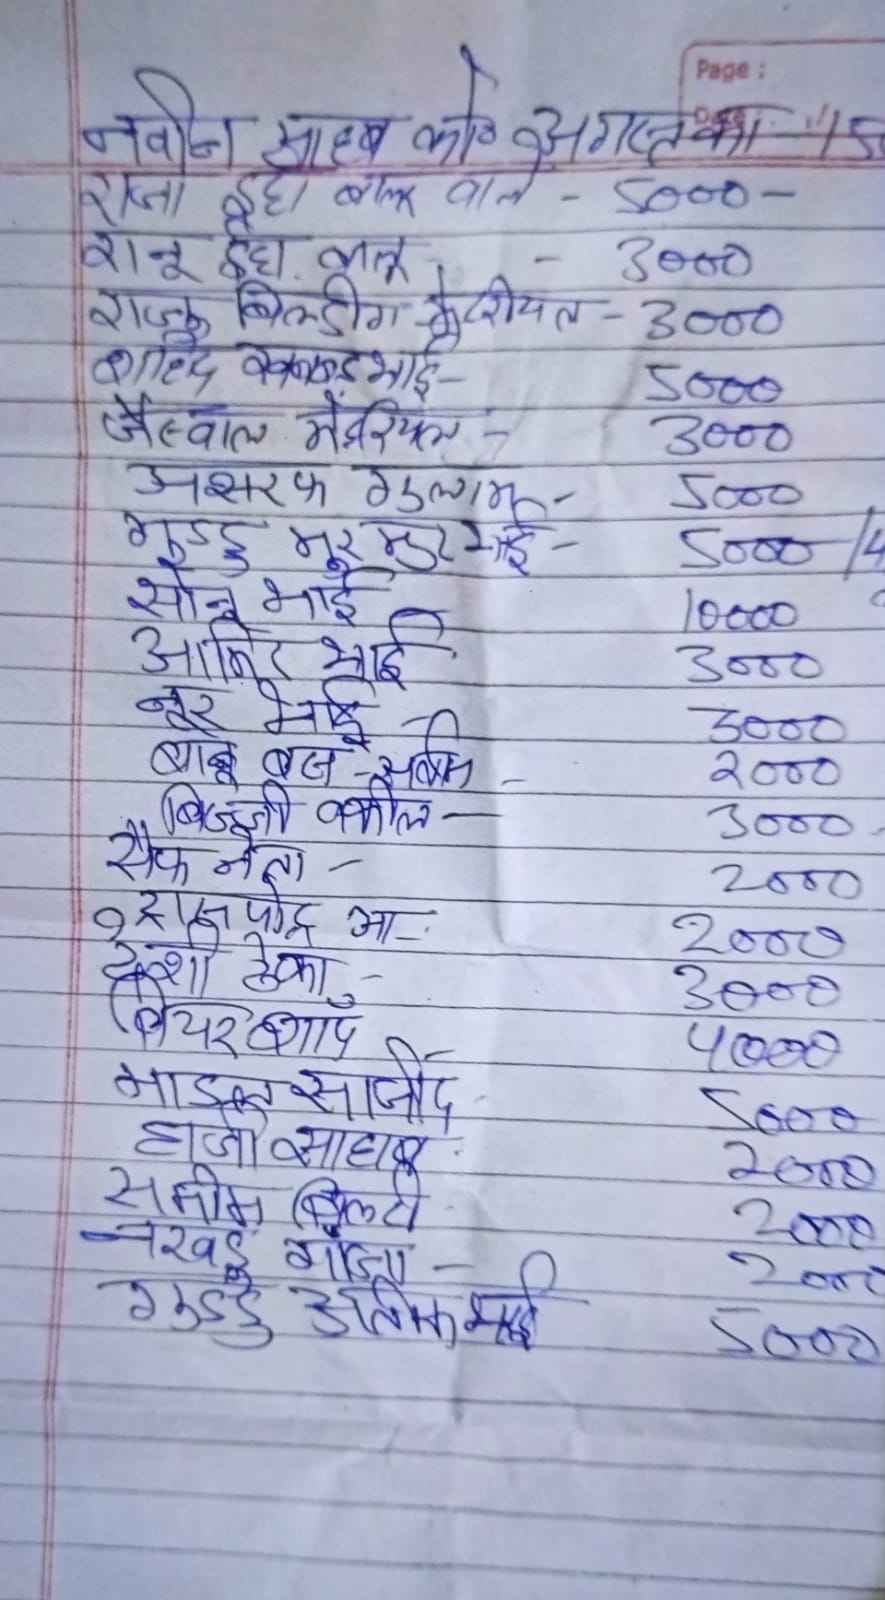 Page :
नवीन साहब को अगस्त का 15
राजा ईंधा बालू वाले - 5000 -
शानू ईंधा. बालू - 3000
राजू बिल्डींग मेटेरीयल - 3000
शाहिद भाई - 5000
जैसवाल मेटेरियल - 3000
असरफ गुलाम - 5000
गुड्डु भाई - 5000 /4
सोनू भाई 10000
आमिर भाई 3000
नूर भाई - 3000
2000
बिज्जी वकील - 3000
सैफ नेता - 2000
2000
देशी ठेका - 3000
बियर शाप 4000
माडल साजीद 5000
हाजी साहाब 2000
समीम बिल्टी 2000
नखडू गांजा - 2000
गुड्डु भाई 5000